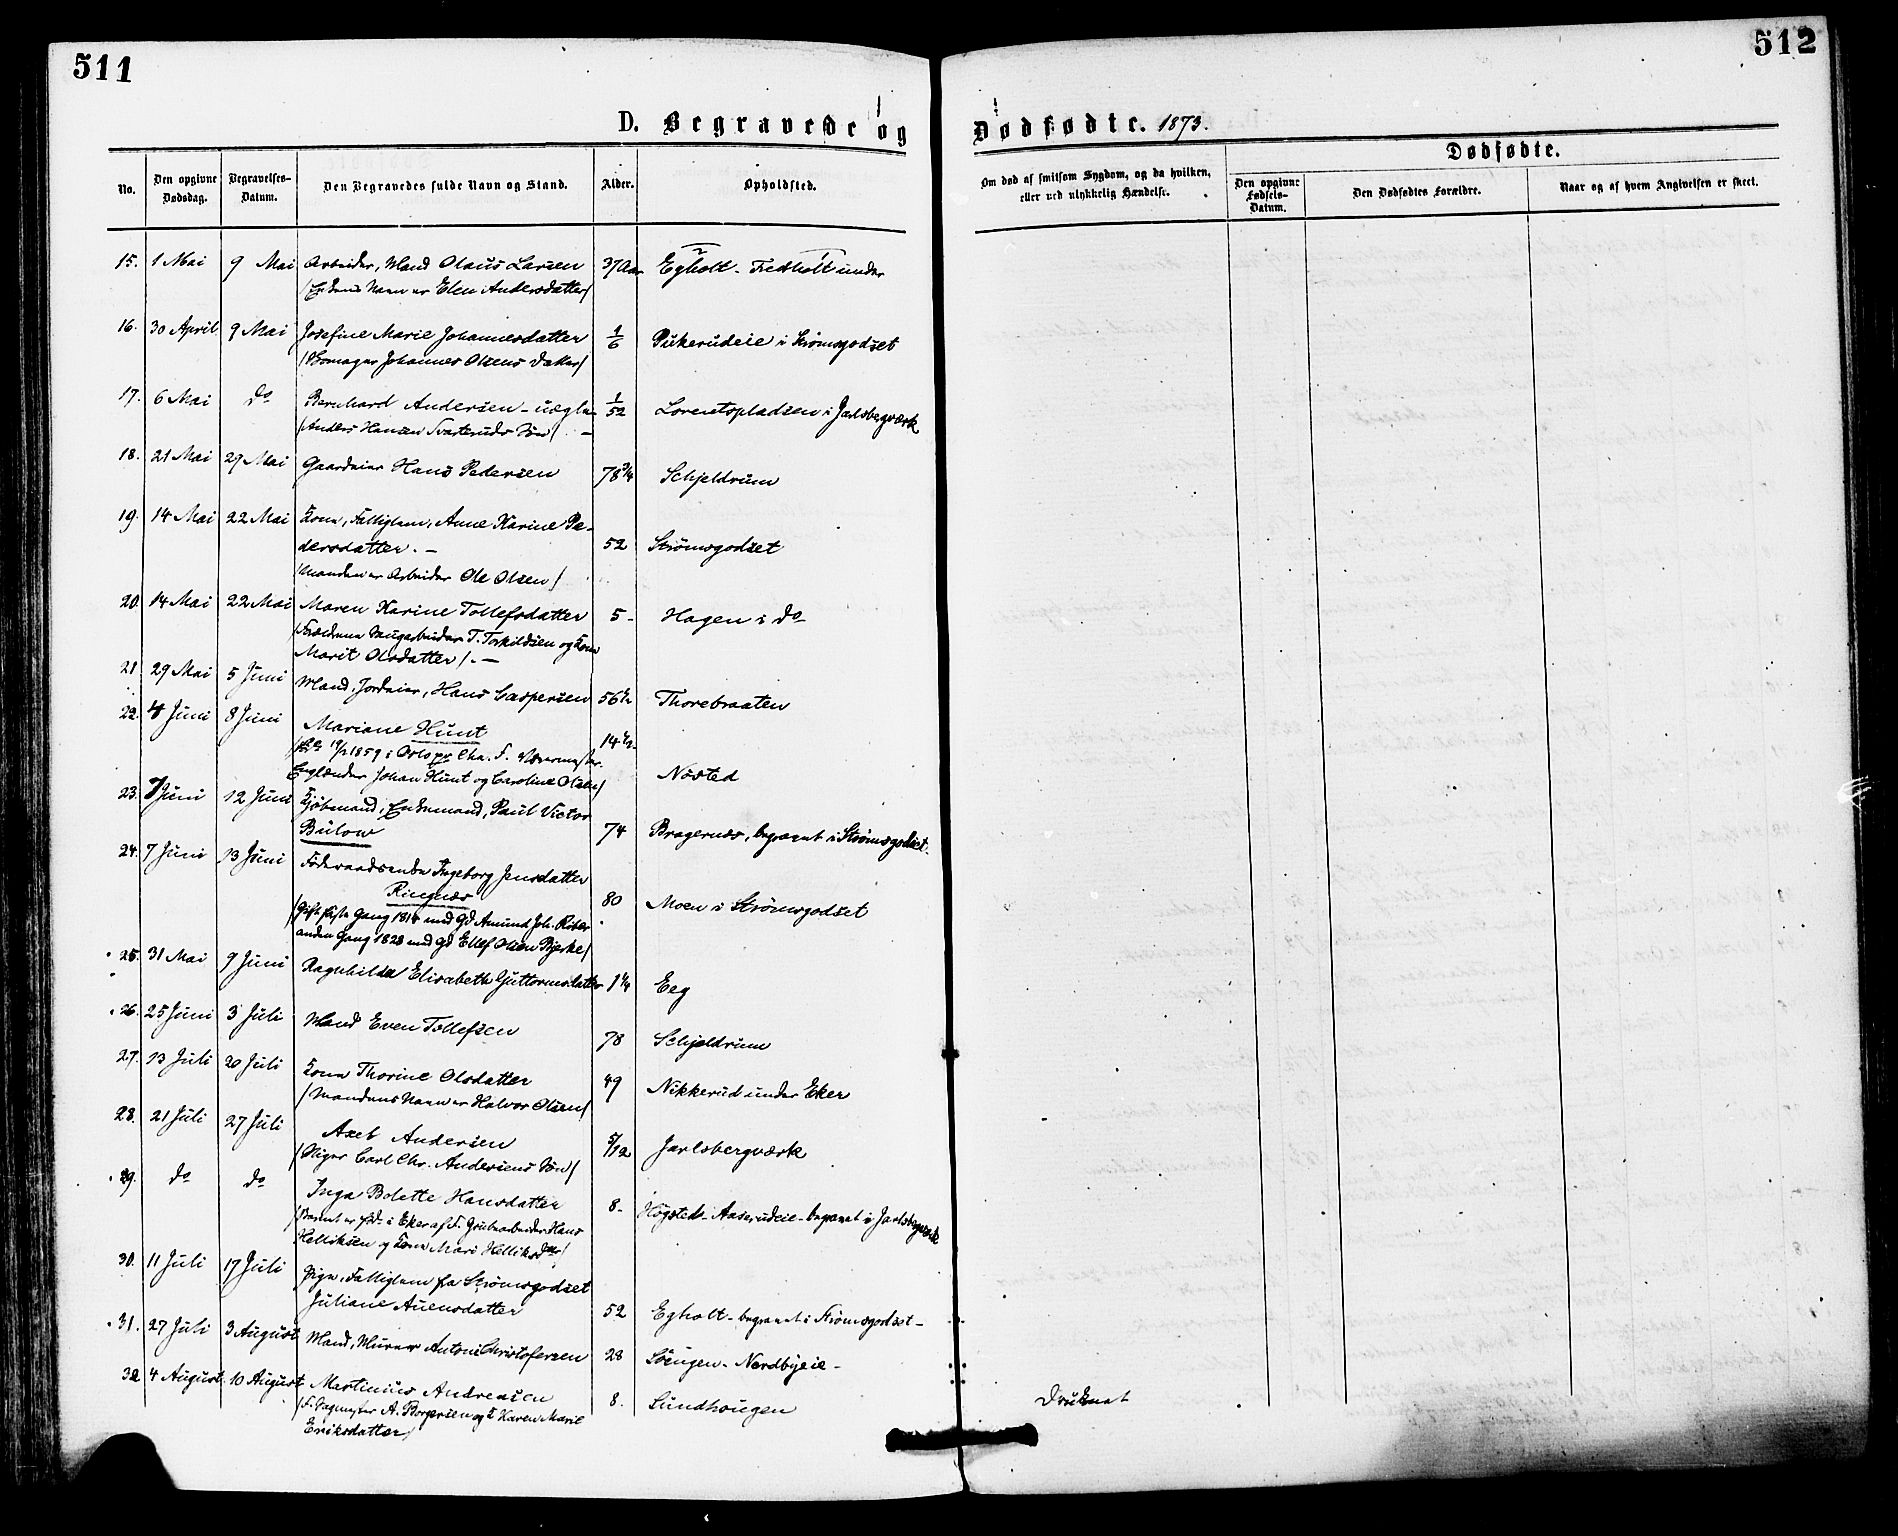 511
512
D. Begravede og
Dødfødte. 1873.
No.
Den opgivne Dødsdag.
Begravelses-Datum.
Den Begravedes fulde Navn og Stand.
Alder.
Opholdsted.
Om død af smitsom Sygdom, og da hvilken, eller ved ulykkelig Hændelse.
Dødfødte.
Den opgivne Fødsels-Datum.
Den Dødfødtes Forældre.
Naar og af hvem Angivelsen er skeet.
15. 1 Mai 9 Mai Arbeider, Mand Olaus Larsen 37 Aar Egholt - Fredholt under
/Enkens Navn er Elen Andersdatter/
16. 30 April 9 Mai Josefine Marie Johannesdatter 1/6 Pukerudeie i Strømsgodset
/Skomager Johannes Olsens Datter/
17. 6 Mai do Bernhard Andersen - uægte 1/52 Lorentspladsen i Jarlsbergværk
/Anders Hansen Svarteruds Søn/. -
18. 21 Mai 29 Mai Gaardeier Hans Pedersen 78 3/4 Schjeldrum
19. 14 Mai 22 Mai Kone, Fattiglem, Anne Karine Pe-
dersdatter. - 52 Strømsgodset
/Manden er Arbeider Ole Olsen/
20. 14 Mai 22 Mai Maren Karine Tollefsdatter 5 - Hagen i do
/Forældrene Saugarbeider T. Torkildsen og Kone
Marit Olsdatter/. -
21 29 Mai 5 Juni Mand, Jordeier, Hans Caspersen 56 1/2 Thorebraaten
22. 4 Juni 8 Juni Mariane Hunt 14 1/2
1859 i Oslo
Englænder Johan Hunt og Caroline Olsen/ Nøsted
23. 7 Juni 12 Juni Kjøbmand, Enkemand, Paul Victor
Bülow 74 Bragernæs, begravet i Strømsgodset.
24. 7 Juni 13 Juni Føderaadsenke Ingeborg Jensdatter
Ringnæs 80 Moen i Strømsgodset
/Gift første Gang 1814 med Gd Amund Joh.
anden Gang 1828 med Gd Ellef Olsen Bjerke/
25. 31 Mai 9 Juni Ragnhilda Elisabeth Guttormsdatter 1 1/4 Eeg
26. 25 Juni 3 Juli Mand Even Tollefsen 78 Schjeldrum
27. 13 Juli 20 Juli Kone Thorine Olsdatter 49 Nikkerud under Eker
/Mandens Navn er Halvor Olsen/
28. 21 Juli 27 Juli Axel Andersen 5/12 Jarlsbergværk
/Stiger Carl Chr. Andersens Søn/
29. do do Inga Bolette Hansdatter 8 - Høgsteds - Aaserudeie - begravet i Jarlsbergværk
/Barnet er fød i Eker af F. Grubearbeider Hans
Helliksen og Kone Mari Helliksdtr/
30. 11 Juli 17 Juli Pige, Fattiglem fra Strømsgodset
Juliane Auensdatter 52 Egholt - begravet i Strømsgodset -
31. 27 Juli 3 August Mand, Murer Anton Christofersen 28 Søugen - Nordbyeie -
32 4 August 10 August Martinius Andreasen 8. Sundhougen Druknet
/F. Sagmester A. Borgersen og K Karen Marie
Eriksdatter/